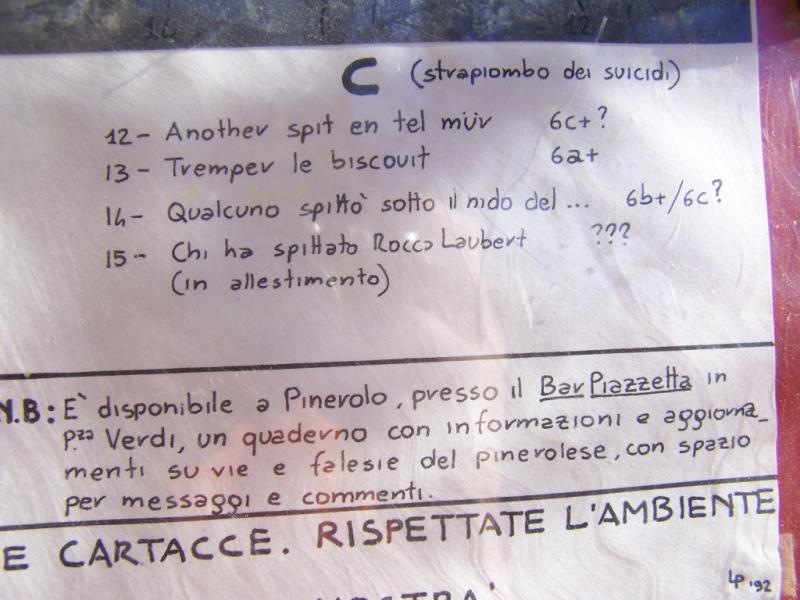 C (strapiombo dei suicidi)
12- Another spit en tel müv 6c+?
13- Tremper le biscouit 6a+
14- Qualcuno spittò sotto il nido del ... 6b+/6c?
15- Chi ha spittato Rocca Laubert ???
(in allestimento)
N.B: E' disponibile a Pinerolo, presso il Bar Piazzetta in
P.zza Verdi, un quaderno con informazioni e aggiorna_
menti su vie e falesie del pinerolese, con spazio
per messaggi e commenti.
E CARTACCE. RISPETTATE L'AMBIENTE
LP '92